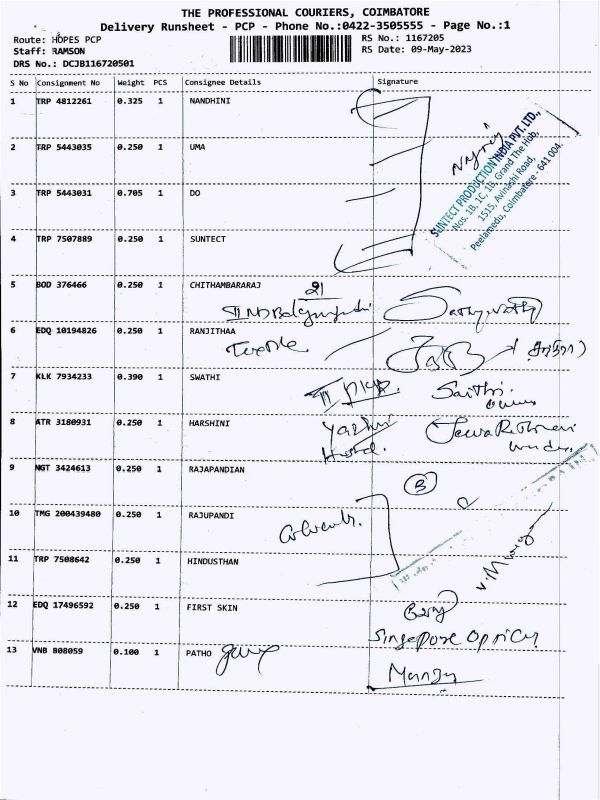 THE PROFESSIONAL COURIERS, COIMBATORE
Delivery Runsheet - PCP - Phone No.:0422-3505555 - Page No.:1
Route: HOPES PCP
RS No.: 1167205
Staff: RAMSON
RS Date: 09-May-2023
DRS No.: DCJB116720501
S No Consignment No Weight PCS Consignee Details Signature
1 TRP 4812261 0.325 1 NANDHINI
SUNTECT PRODUCTION INDIA PVT. LTD.,
Nos. 1B, 1C, 1B, Grand The Hub,
1515, Avinashi Road,
Peelamedu, Coimbatore - 641 004.
2 TRP 5443035 0.250 1 UMA
3 TRP 5443031 0.705 1 DO
4 TRP 7507889 0.250 1 SUNTECT
5 BOD 376466 0.250 1 CHITHAMBARARAJ
6 EDQ 10194826 0.250 1 RANJITHAA
Textile
7 KLK 7934233 0.390 1 SWATHI
8 ATR 3180931 0.250 1 HARSHINI
Yazhini
Hotel.
9 NGT 3424613 0.250 1 RAJAPANDIAN
B
10 TMG 200439480 0.250 1 RAJUPANDI
11 TRP 7508642 0.250 1 HINDUSTHAN
12 EDQ 17496592 0.250 1 FIRST SKIN
Singapore Opticy
13 VNB 808059 0.100 1 PATHO
Manju